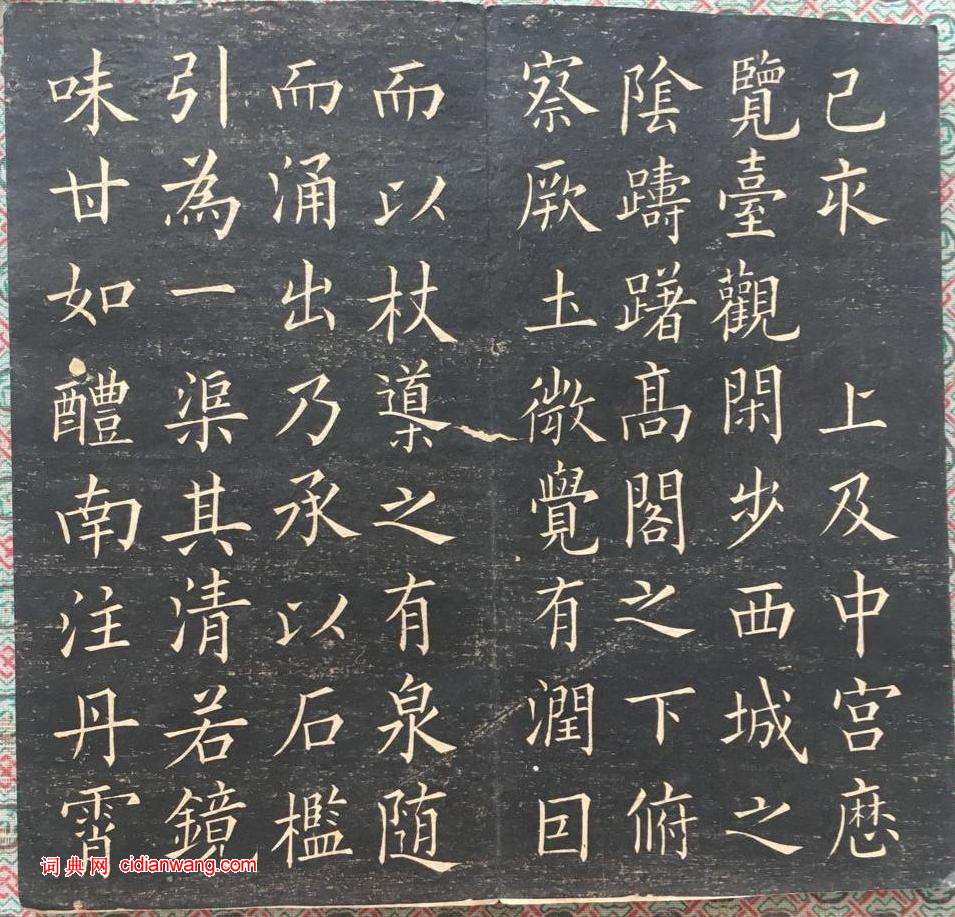 己亥　上及中宮歷
覽臺觀閑步西城之
陰躊躇高閣之下俯
察厥土微覺有潤因
而以杖導之有泉随
而涌出乃承以石檻
引為一渠其清若鏡
味甘如醴南注丹霄
词典网 cidianwang.com